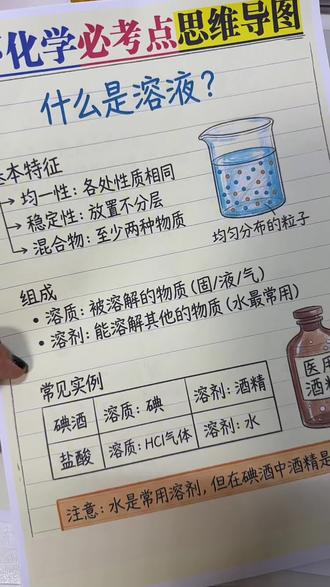 化学必考点思维导图
什么是溶液?
本特征
均一性: 各处性质相同
稳定性: 放置不分层
混合物: 至少两种物质
均匀分布的粒子
组成
• 溶质: 被溶解的物质 (固/液/气)
• 溶剂: 能溶解其他的物质 (水最常用)
常见实例
碘酒 溶质: 碘 溶剂: 酒精
盐酸 溶质: HCl气体 溶剂: 水
医用
酒精
注意: 水是常用溶剂, 但在碘酒中酒精是